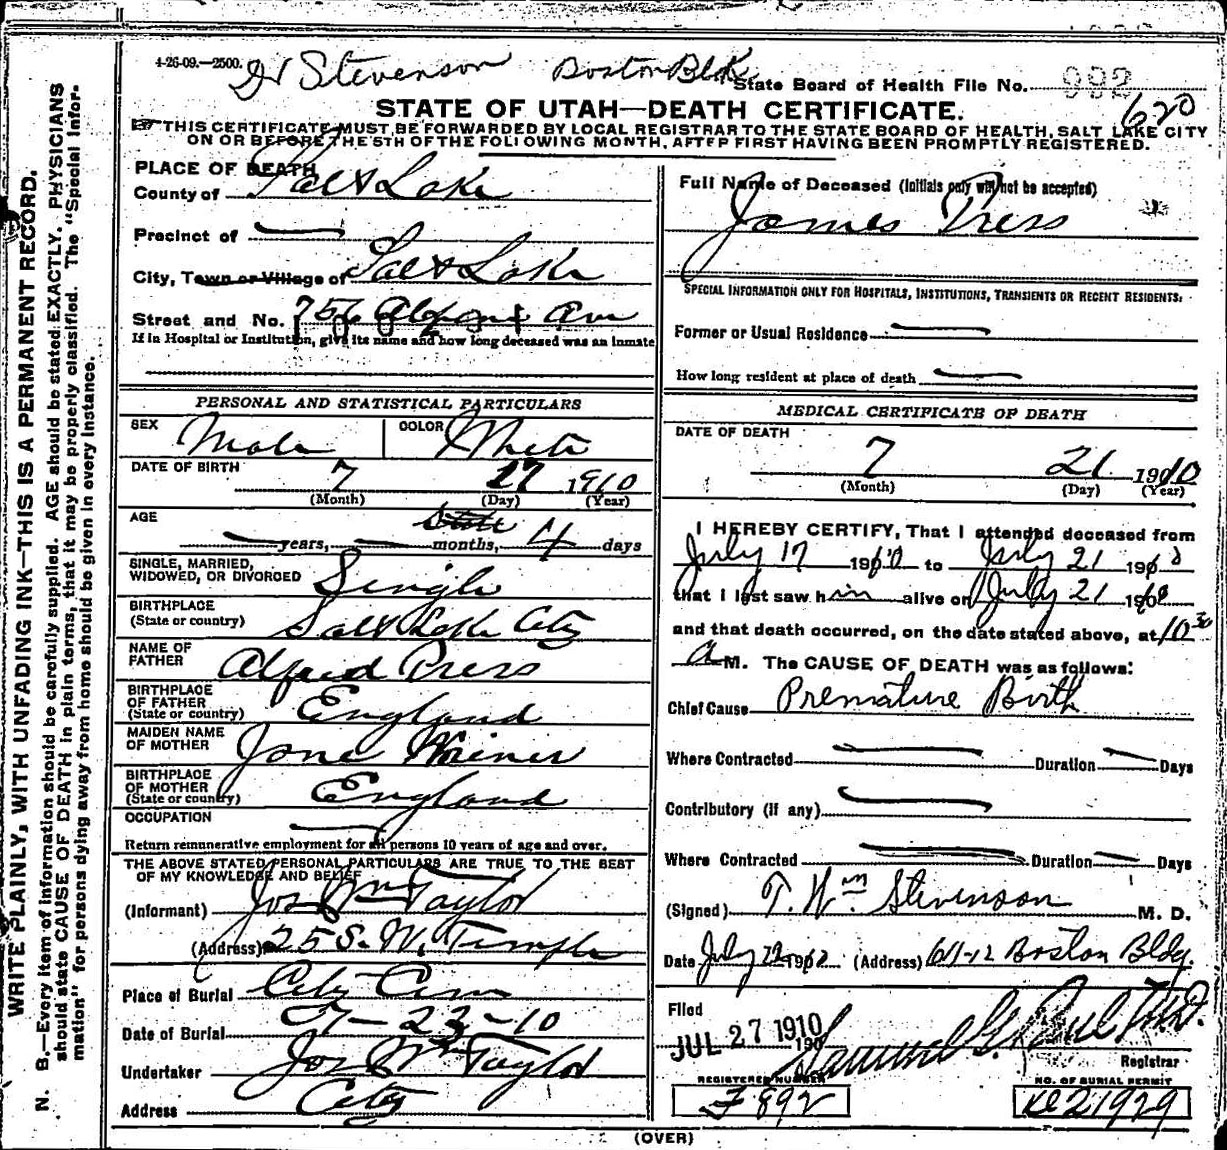 4-26-09.—2500. Stevenson Boston Blk State Board of Health File No. 992
620
STATE OF UTAH—DEATH CERTIFICATE.
THIS CERTIFICATE MUST BE FORWARDED BY LOCAL REGISTRAR TO THE STATE BOARD OF HEALTH, SALT LAKE CITY
ON OR BEFORE THE 5TH OF THE FOLLOWING MONTH, AFTER FIRST HAVING BEEN PROMPTLY REGISTERED.
WRITE PLAINLY, WITH UNFADING INK—THIS IS A PERMANENT RECORD.
N. B.—Every item of information should be carefully supplied. AGE should be stated EXACTLY. PHYSICIANS
should state CAUSE OF DEATH in plain terms, that it may be properly classified. The "Special Infor-
mation" for persons dying away from home should be given in every instance.
PLACE OF DEATH
County of Salt Lake
Precinct of
City, Town or Village of Salt Lake
Street and No. 756 Ave
If in Hospital or Institution, give its name and how long deceased was an inmate
PERSONAL AND STATISTICAL PARTICULARS
SEX Male COLOR White
DATE OF BIRTH 7 17 1910
(Month) (Day) (Year)
AGE
years, months, 4 days
SINGLE, MARRIED,
WIDOWED, OR DIVORCED Single
BIRTHPLACE
(State or country) Salt Lake City
NAME OF
FATHER Alfred Press
BIRTHPLACE
OF FATHER
(State or country) England
MAIDEN NAME
OF MOTHER Jane
BIRTHPLACE
OF MOTHER
(State or country) England
OCCUPATION
Return remunerative employment for all persons 10 years of age and over.
THE ABOVE STATED PERSONAL PARTICULARS ARE TRUE TO THE BEST
OF MY KNOWLEDGE AND BELIEF
(Informant) Jos Wm Taylor
(Address) 25 S. W. Temple
Place of Burial City Cem
Date of Burial 7-23-10
Undertaker Jos Wm Taylor
Address City
Full Name of Deceased (Initials only will not be accepted)
James Press
SPECIAL INFORMATION ONLY FOR HOSPITALS, INSTITUTIONS, TRANSIENTS OR RECENT RESIDENTS:
Former or Usual Residence
How long resident at place of death
MEDICAL CERTIFICATE OF DEATH
DATE OF DEATH
7 21 1910
(Month) (Day) (Year)
I HEREBY CERTIFY, That I attended deceased from
July 17 1910 to July 21 1910
that I last saw him alive on July 21 1910
and that death occurred, on the date stated above, at 10 30
A M. The CAUSE OF DEATH was as follows:
Chief Cause Premature Birth
Where Contracted Duration Days
Contributory (if any)
Where Contracted Duration Days
(Signed) T. Wm Stevenson M. D.
Date July 22 1910 (Address) 611-12 Boston Bldg.
Filed
JUL 27 1910
190 Samuel G. Paul M.D.
Registrar
REGISTERED NUMBER NO. OF BURIAL PERMIT
F 892 21929
(OVER)